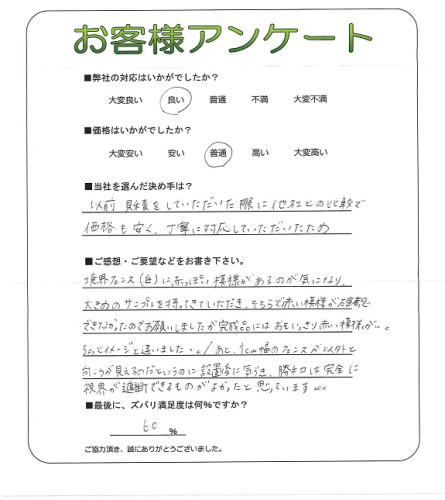 お客様アンケート
■弊社の対応はいかがでしたか?
大変良い 良い 普通 不満 大変不満
■価格はいかがでしたか?
大変安い 安い 普通 高い 大変高い
■当社を選んだ決め手は?
以前見積をしていただいた際に他社との比較で
価格も安く、丁寧に対応していただいたため
■ご感想・ご要望などをお書き下さい。
境界フェンス(白)に赤っぽい模様があるのが気になり、
大きめのサンプルを持ってきていただき、そちらで赤い模様が確認
できなかったのでお願いしましたが完成品にはおもいっきり赤い模様が…。
ちょっとイメージと違いました…。/あと、1cm幅のフェンスが以外と
向こうが見えるのだというのに設置後に気づき、勝手口は完全に
視界が遮断できるものがよかったと思っています…
■最後に、ズバリ満足度は何%ですか?
60 %
ご協力頂き、誠にありがとうございました。